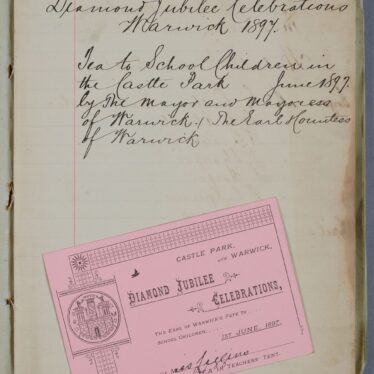 Diamond Jubilee Celebrations
Warwick 1897.
Tea to School Children in
the Castle Park June 1897.
by The Mayor and Mayoress
of Warwick / The Earl & Countess
of Warwick
CASTLE PARK,
WARWICK,
DIAMOND JUBILEE
CELEBRATIONS,
THE EARL OF WARWICK'S FETE TO
SCHOOL CHILDREN,
1ST JUNE, 1897.
TEACHERS' TENT.